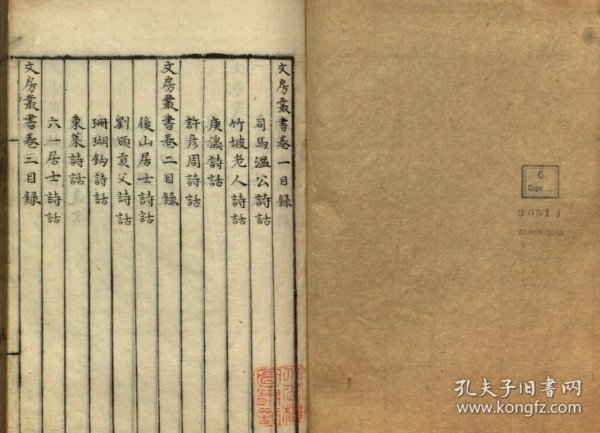 文房叢書卷一目録
司馬溫公詩話
竹坡老人詩話
庚溪詩話
許彦周詩話
文房叢書卷二目録
後山居士詩話
劉頒貢父詩話
珊瑚鈎詩話
東萊詩話
六一居士詩話
文房叢書卷三目録
6
Copy
20517
21 NOV 1950
孔夫子旧書网
www.kongfz.com